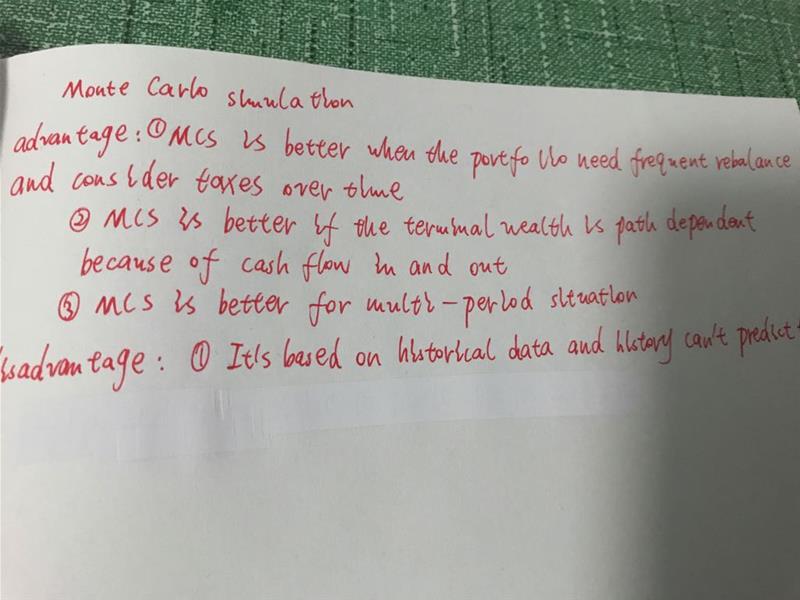 Monte Carlo simulation
advantage: ① MCS is better when the portfolio need frequent rebalance
and consider taxes over time
② MCS is better if the terminal wealth is path dependent
because of cash flow in and out
③ MCS is better for multi-period situation
isadvantage: ① It's based on historical data and history can't predict